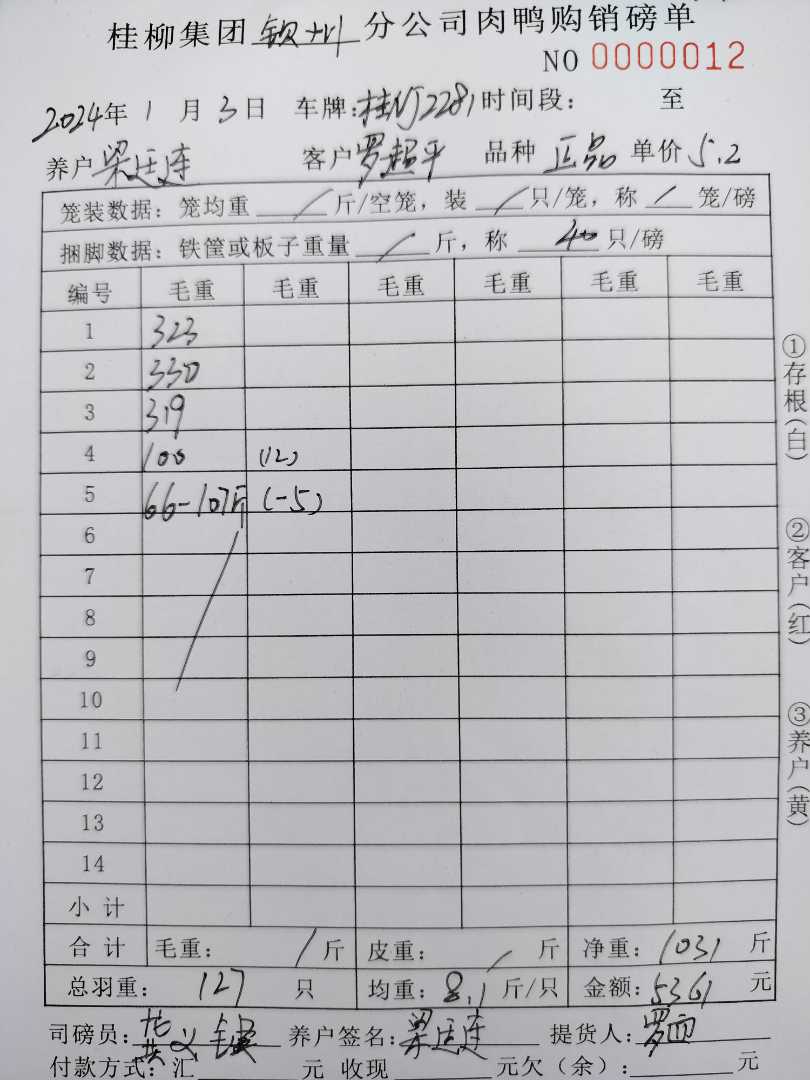 桂柳集团钦州分公司肉鸭购销磅单
NO 0000012
2024年1月3日 车牌:桂NJ2281时间段: 至
养户梁廷连 客户罗超平 品种 正品 单价5.2
笼装数据:笼均重 / 斤/空笼,装 / 只/笼,称 / 笼/磅
捆脚数据:铁筐或板子重量 / 斤,称 40 只/磅
编号 毛重 毛重 毛重 毛重 毛重 毛重
1 323
2 330
3 319
4 100 (12)
5 66-107斤 (-5)
6
7
8
9
10
11
12
13
14
小计
合计 毛重: / 斤 皮重: / 斤 净重:1031 斤
总羽重: 127 只 均重:8.1斤/只 金额:5361 元
司磅员: 养户签名:梁廷连 提货人:罗
付款方式:汇 元 收现 元欠(余): 元
①存根(白)
②客户(红)
③养户(黄)